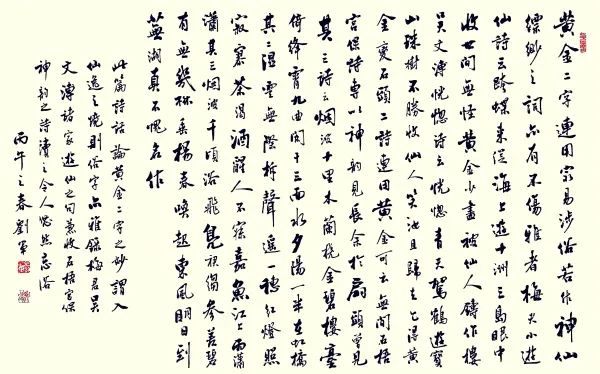 黄金二字連用最易涉俗若作神仙
縹緲之詞亦有不傷雅者梅夫小遊
仙詩云跨蝶来從海上遊十洲三島眼中
收世間無怪黄金少盡被仙人磚作樓
吴文溥恍惚詩云恍惚青天駕鶴遊寶
山珠樹不勝收仙人笑汝且歸去乞得黄
金變石頭二詩連用黄金可云無閒石梧
宫保詩専以神韵見長余於扇頭曾見
其三詩云烟波十里木蘭橈金碧樓臺
倚絳霄九曲闌干三面水夕陽一半在虹橋
其二溼雲無際柝聲遥一穗紅燈照
寂寥茶渴酒醒人不寐嘉魚江上雨瀟
瀟其三烟波千頃浴飛凫裙褐參差碧
有無幾株垂楊春喚起東風明日到
蕪湖真不愧名作
此篇詩話論黄金二字之妙謂入
仙逸之境則俗字亦雅録梅君吴
文溥詩家遊仙之句兼收石梧宫保
神韵之詩讀之令人悠然忘俗
丙午之春劉軍